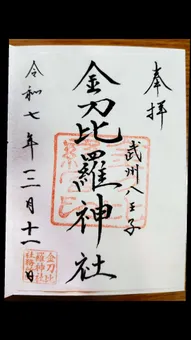 奉拝
武州八王子
金刀比羅神社
令和七年十二月十一日
金刀比
羅神社
社務所